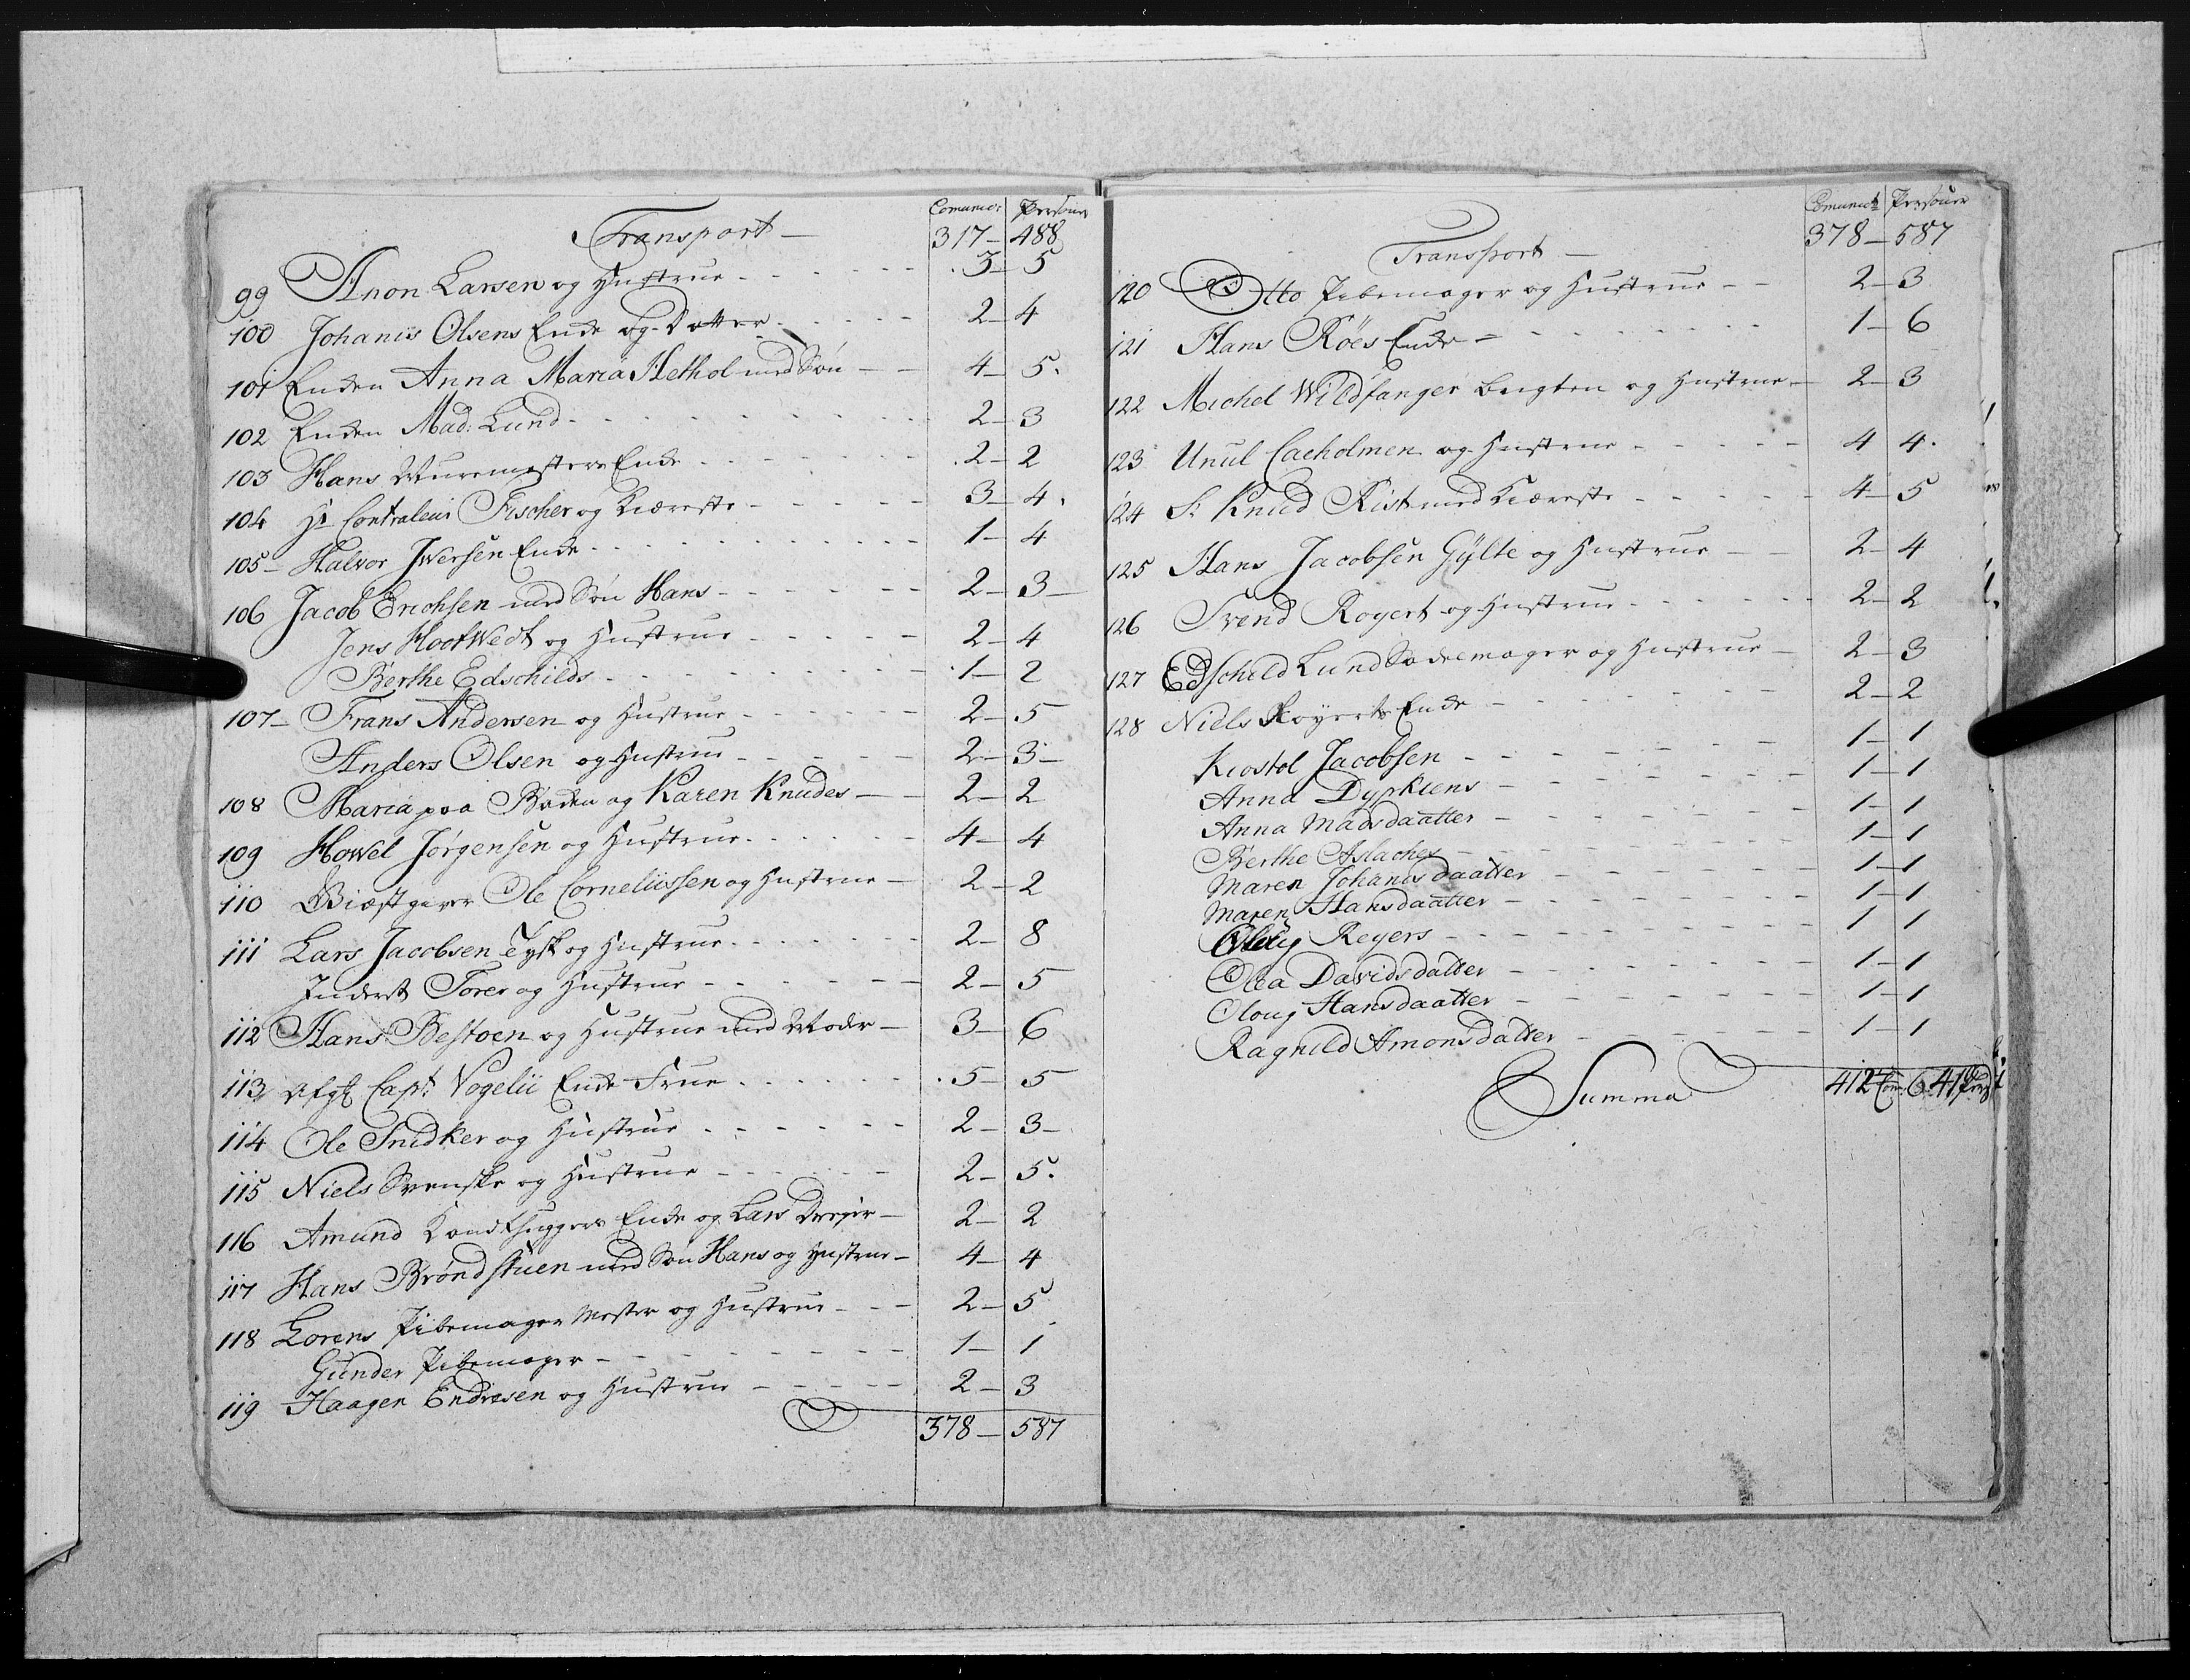 Comunic: Persouer
Transport — 317 — 488
99 Anon Larsen og Hustrue - - - 3 — 5
100 Johanis Olsens Enke og Datter - - - 2 — 4
101 Enken Anna Maria Hethol med Søn — 4 — 5.
102 Enken Mad: Lund - - - 2 — 3
103 Hans Muurmesters Enke - - - 2 — 2
104 Hr Contraleur Fischer og Kiæreste - - - 3 — 4.
105 — Halvor Iwersen Enke - - - 1 — 4
106 Jacob Erichsen med Søn Hans - - - 2 — 3 —
Jens Hootwedt og Hustrue - - - 2 — 4
Berthe Edschilds - - - 1 — 2
107 — Frans Andersen og Hustrue - - - 2 — 5
Anders Olsen og Hustrue - - - 2 — 3 —
108 Maria paa Boden og Karen Knudes — 2 — 2
109 Howel Jørgensen og Hustrue - - - 4 — 4
110 Giæstgiver Ole Corneliissen og Hustrue — 2 — 2
111 Lars Jacobsen Tysk og Hustrue - - - 2 — 8
Inderst Torer og Hustrue - - - 2 — 5
112 Hans Bestoen og Hustrue med Moder — 3 — 6
113 Afgt Capt: Vogelii Enke Frue - - - 5 — 5
114 Ole Snidker og Hustrue - - - 2 — 3 —
115 Niels Svenske og Hustrue - - - 2 — 5.
116 Amund Enke og Lars — 2 — 2
117 Hans Brøndstuen med Søn Hans og Hustrue — 4 — 4
118 Lorens Pibemager Mester og Hustrue - - - 2 — 5
Gunder Pibemager - - - 1 — 1
119 Haagen Endresen og Hustrue - - - 2 — 3
378 — 587
Comunict Persouer
Transport — 378 — 587
120 Otto Pibemager og Hustrue - - 2 — 3
121 Hans Röes Enke - - - 1 — 6
122 Michel Wildfanger og Hustrue — 2 — 3
123 Unul Caeholmen og Hustrue - - - 4 4.
124 S: Knud Rist med Kiæreste - - - 4 — 5
125 Hans Jacobsen Gylte og Hustrue — 2 — 4
126 Svend Rogert og Hustrue - - - 2 — 2
127 Edschild Lund Sadelmager og Hustrue — 2 — 3
128 Niels Royerts Enke - - - 2 — 2
Kiostol Jacobsen - - - 1 — 1
Anna Dypkiens - - - 1 — 1
Anna Madsdaatter - - - 1 — 1
Berthe Aslaches - - - 1 — 1
Maren Johanisdaatter - - - 1 — 1
Maren Hansdaatter - - - 1 — 1
Oloug Reyers - - - 1 1
Olea Davidsdatter - - - 1 — 1
Oloug Hansdaatter - - - 1 — 1
Ragnild Amonsdatter - - - 1 — 1
Summa 412 Com: 641